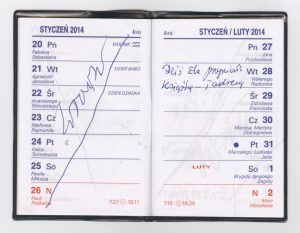 STYCZEŃ 2014
20 Pn
Fabiana
Sebastiana
WODNIK
21 Wt
Agnieszki
Jarosława
DZIEŃ BABCI
22 Śr
Anastazego
Wincentego
DZIEŃ DZIADKA
23 Cz
Ildefonsa
Rajmunda
24 Pt
Felicji
Tymoteusza
25 So
Pawła
Miłosza
26 N
Pauli
Polikarpa
7:27 16:11
STYCZEŃ / LUTY 2014
Pn 27
Jana
Przybysława
Wt 28
Walerego
Radomira
Śr 29
Zdzisława
Franciszka
Cz 30
Macieja Martyny
Dobrogniewy
Pt 31
Marcelego Ludwika
Jana
LUTY
So 1
Brygidy Ignacego
Żegoty
N 2
Marii
Mirosława
7:18 16:24
Dziś Ela